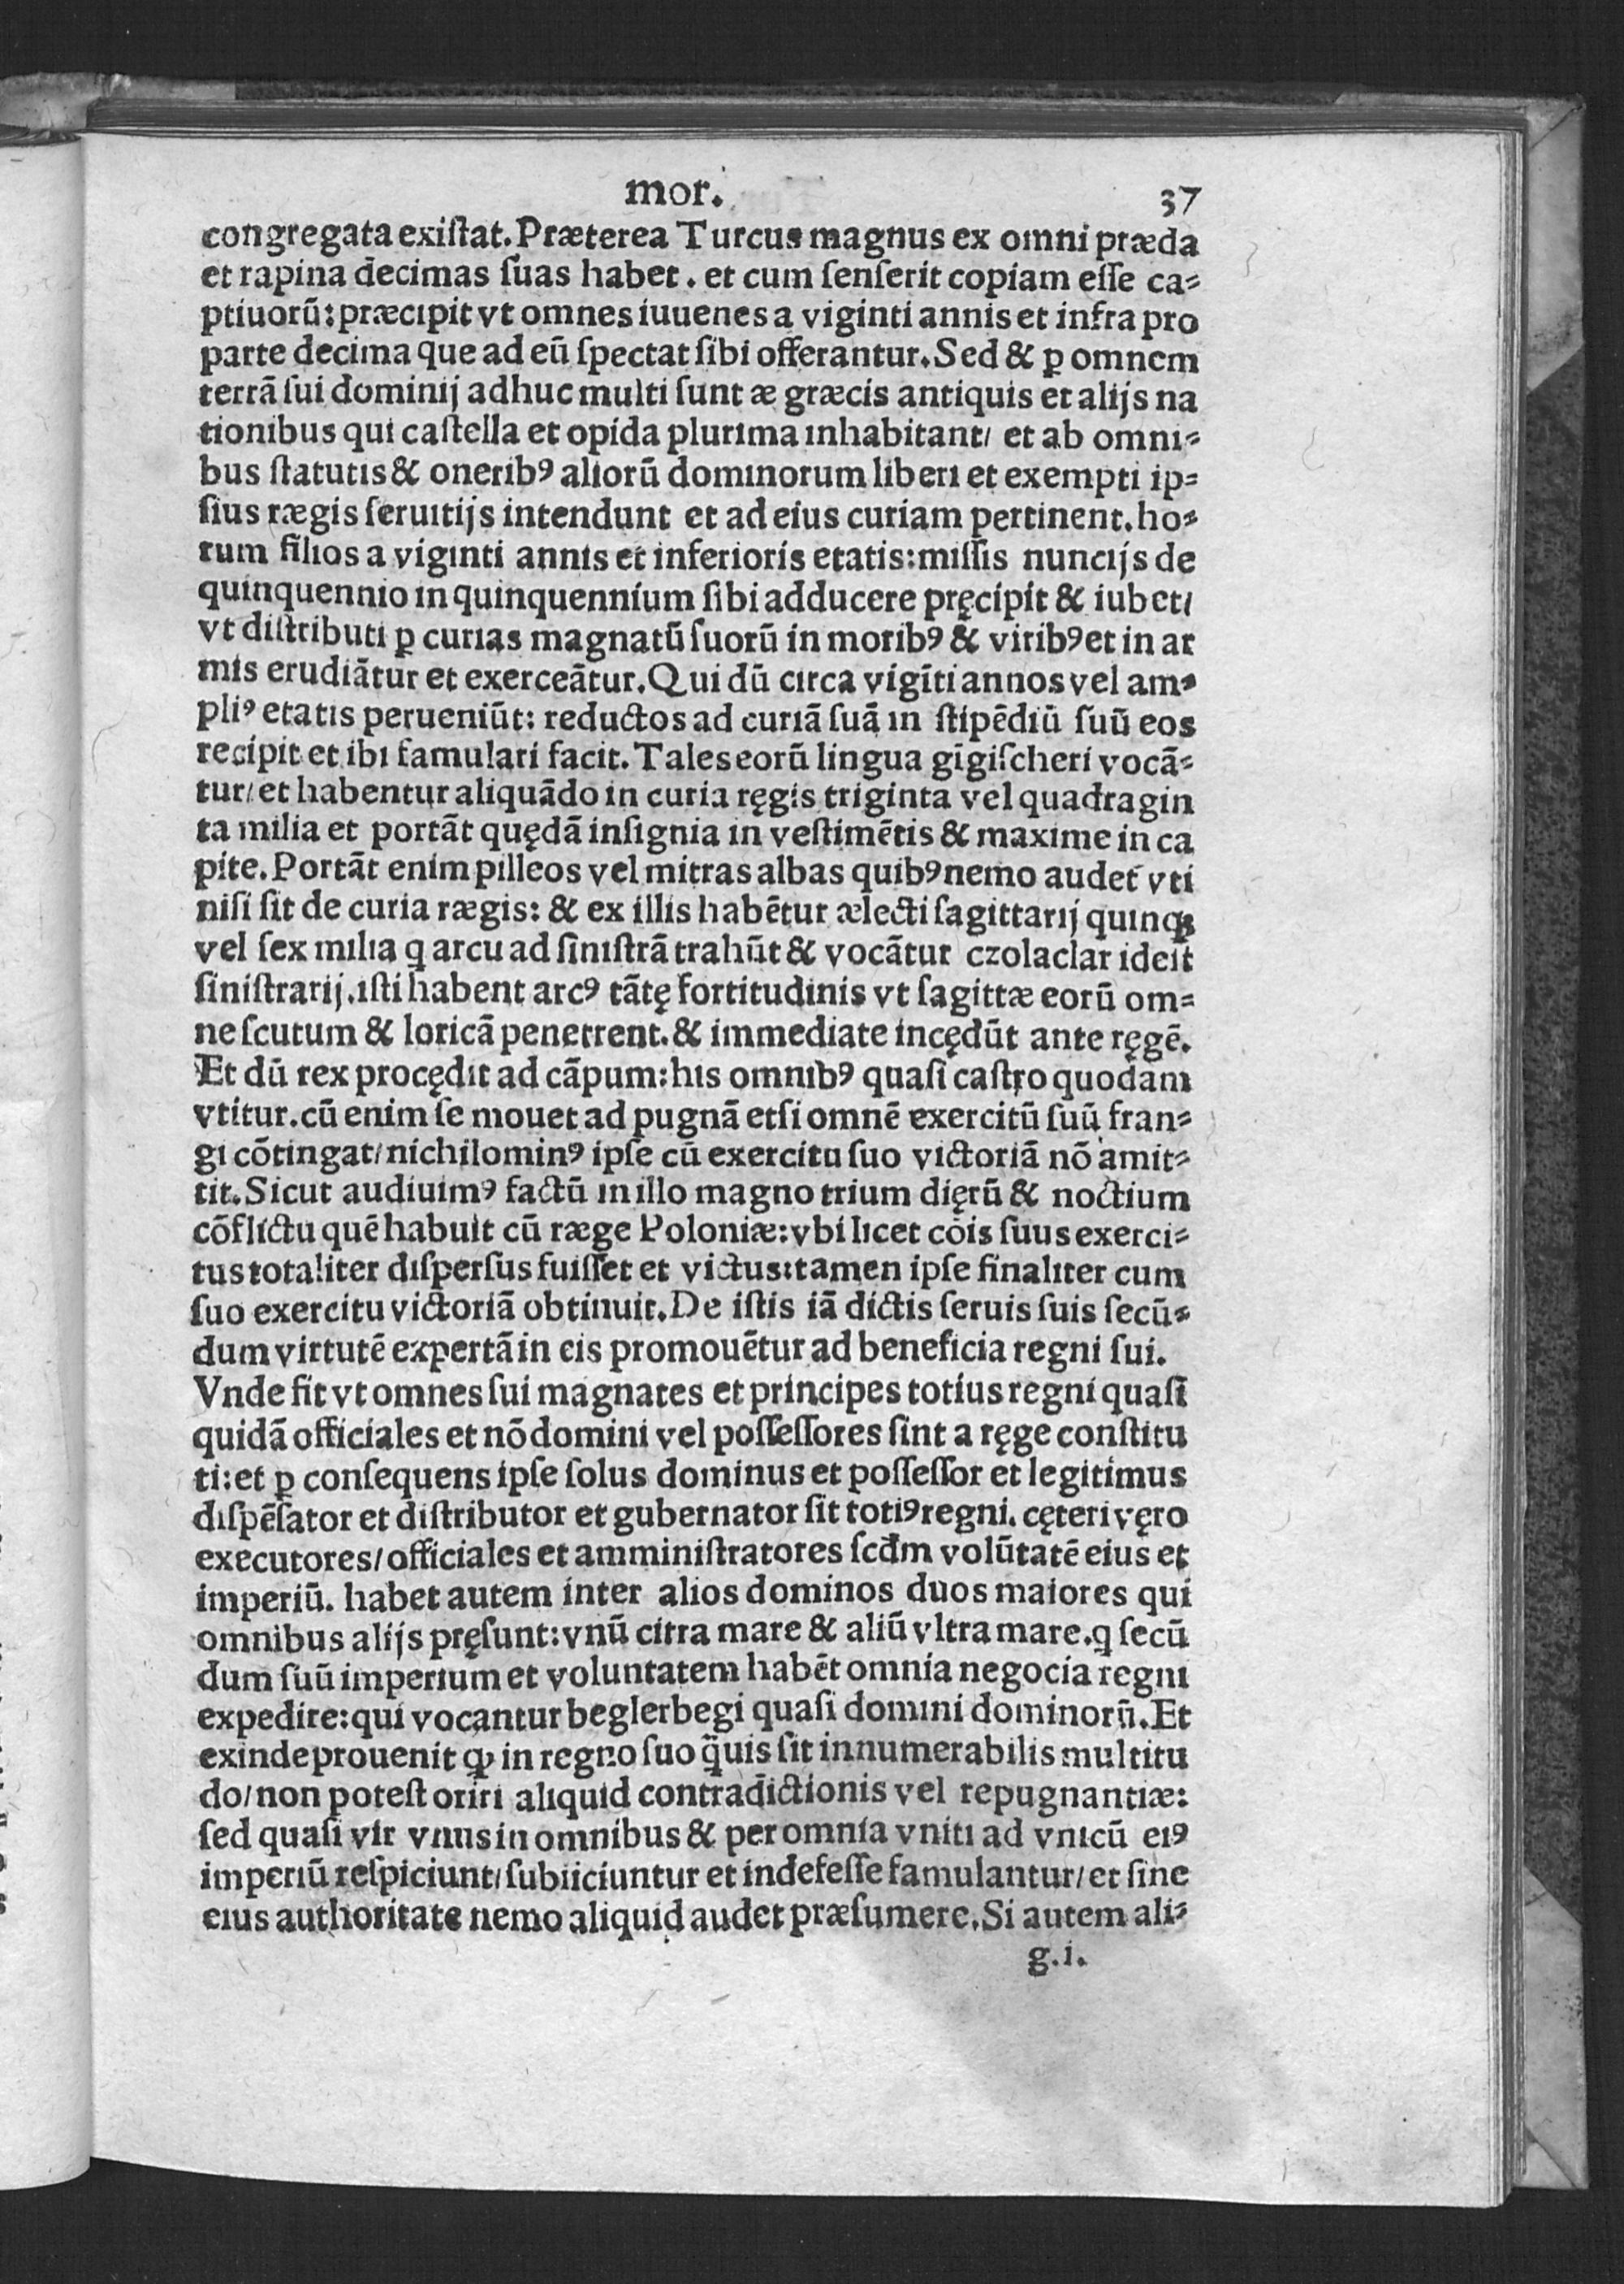 mor.
37
congregata exiſtat. Præterea Turcus magnus ex omni præda
et rapina decimas ſuas habet. et cum ſenſerit copiam eſſe ca⸗
ptiuorū: præcipit vt omnes iuuenes a viginti annis et infra pro
parte decima que ad eū ſpectat ſibi offerantur. Sed & ꝑ omnem
terrā ſui dominij adhuc multi ſunt æ græcis antiquis et alijs na
tionibus qui caſtella et opida plurima inhabitant/ et ab omni⸗
bus ſtatutis & oneribꝰ aliorū dominorum liberi et exempti ip⸗
ſius rægis ſeruitijs intendunt et ad eius curiam pertinent. ho⸗
rum filios a viginti annis et inferioris etatis: miſſis nuncijs de
quinquennio in quinquennium ſibi adducere pręcipit & iubet/
vt diſtributi ꝑ curias magnatū ſuorū in moribꝰ & viribꝰ et in ar
mis erudiātur et exerceātur. Qui dū circa vigīti annos vel am⸗
pliꝰ etatis perueniūt: reductos ad curiā ſuā in ſtipēdiū ſuū eos
recipit et ibi famulari facit. Tales eorū lingua gīgiſcheri vocā⸗
tur/ et habentur aliquādo in curia ręgis triginta vel quadragin
ta milia et portāt quędā inſignia in veſtimētis & maxime in ca
pite. Portāt enim pilleos vel mitras albas quibꝰ nemo audet vti
niſi ſit de curia rægis: & ex illis habētur ælecti ſagittarij quinqꝫ
vel ſex milia ꝗ arcu ad ſiniſtrā trahūt & vocātur czolaclar ideſt
ſiniſtrarij. iſti habent arcꝰ tātę fortitudinis vt ſagittæ eorū om⸗
ne ſcutum & loricā penetrent. & immediate incędūt ante ręgē.
Et dū rex procędit ad cāpum: his omnibꝰ quaſi caſtro quodam
vtitur. cū enim ſe mouet ad pugnā etſi omnē exercitū ſuū fran⸗
gi cōtingat/ nichilominꝰ ipſe cū exercitu ſuo victoriā nō amit⸗
tit. Sicut audiuimꝰ factū in illo magno trium dięrū & noctium
cōflictu quē habuit cū ræge Poloniæ: vbi licet cōis ſuus exerci⸗
tus totaliter diſperſus fuiſſet et victus: tamen ipſe finaliter cum
ſuo exercitu victoriā obtinuit. De iſtis iā dictis ſeruis ſuis ſecū⸗
dum virtutē expertā in eis promouētur ad beneficia regni ſui.
Vnde fit vt omnes ſui magnates et principes totius regni quaſi
quidā officiales et nō domini vel poſſeſſores ſint a ręge conſtitu
ti: et ꝑ conſequens ipſe ſolus dominus et poſſeſſor et legitimus
diſpēſator et diſtributor et gubernator ſit totiꝰ regni. cęteri vęro
executores/ officiales et amminiſtratores ſcd̄m volūtatē eius et
imperiū. habet autem inter alios dominos duos maiores qui
omnibus alijs pręſunt: vnū citra mare & aliū vltra mare. ꝗ ſecū
dum ſuū imperium et voluntatem habēt omnia negocia regni
expedire: qui vocantur beglerbegi quaſi domini dominorū. Et
exinde prouenit ꝙ in regno ſuo q̄uis ſit innumerabilis multitu
do/ non poteſt oriri aliquid contradictionis vel repugnantiæ:
ſed quaſi vir vnus in omnibus & per omnia vniti ad vnicū eiꝰ
imperiū reſpiciunt/ ſubiiciuntur et indefeſſe famulantur/ et ſine
eius authoritate nemo aliquid audet præſumere. Si autem ali⸗
g.i.